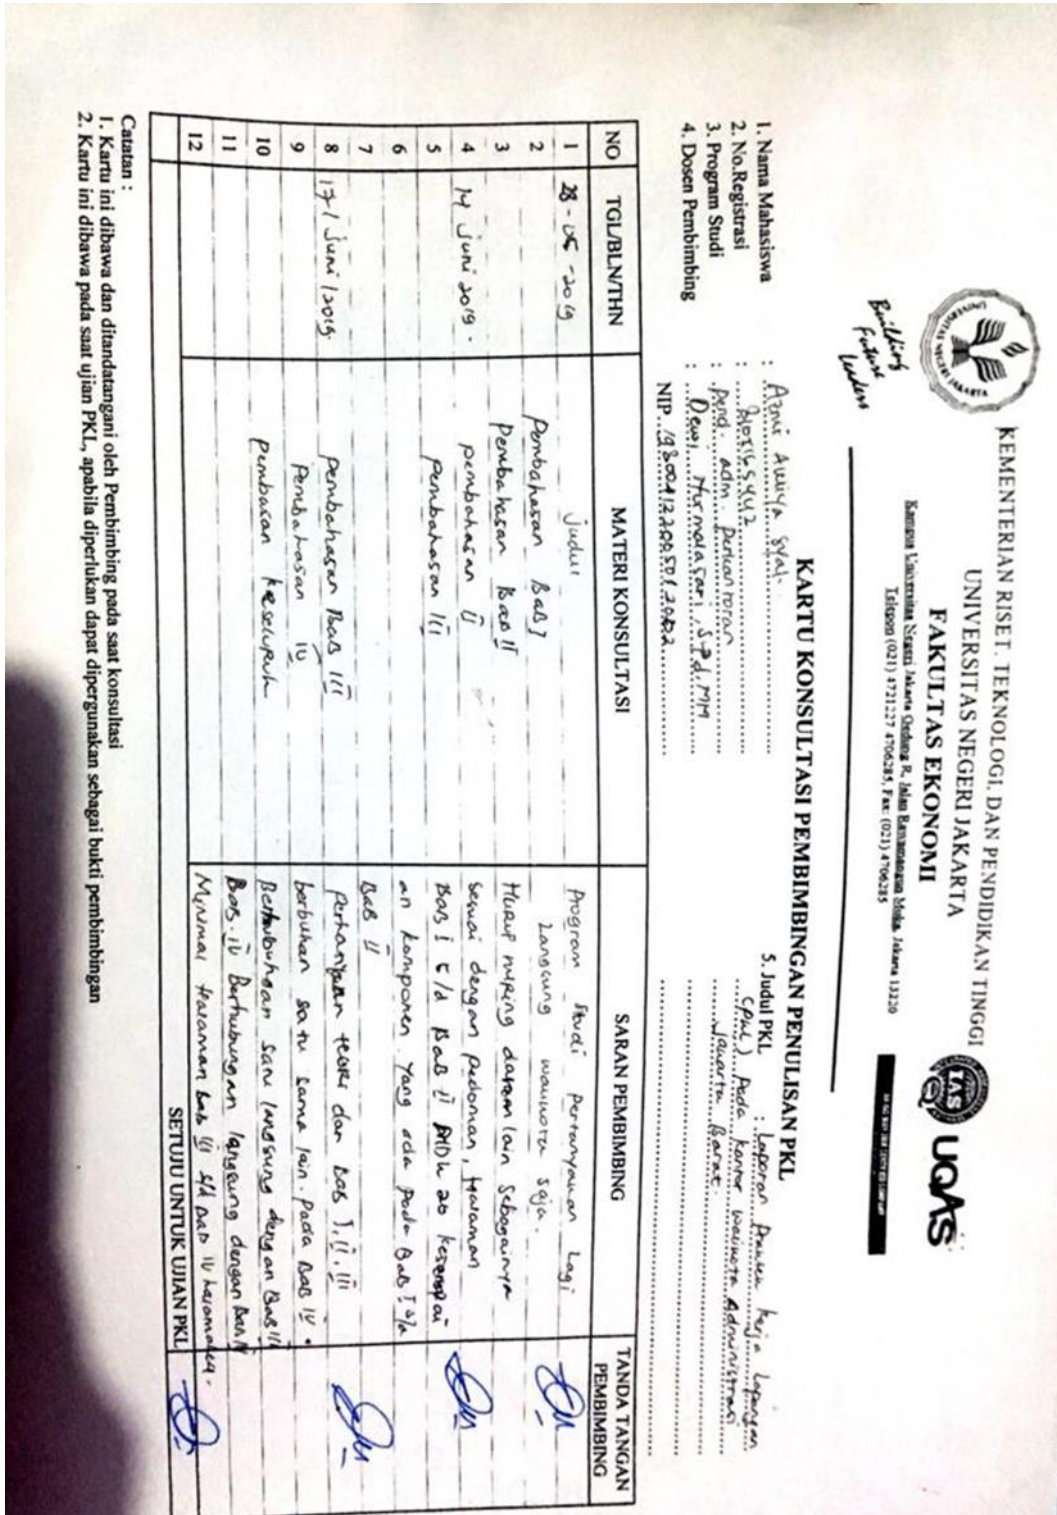 KEMENTERIAN RISET. TEKNOLOGI, DAN PENDIDIKAN TINGGI
UNIVERSITAS NEGERI JAKARTA
FAKULTAS EKONOMI
Kampus Universitas Negeri Jakarta Gedung R, Jalan Rawamangun Muka, Jakarta 13220
Telepon (021) 4721227 4706285, Fax: (021) 4706285
UNIVERSITAS NEGERI JAKARTA
Building
Future
Leaders
IAS
UQAS
KARTU KONSULTASI PEMBIMBINGAN PENULISAN PKL
1. Nama Mahasiswa : Azmi Auliya Syah.
2. No.Registrasi :
3. Program Studi : Pend. adm. Perkantoran
4. Dosen Pembimbing : Dewi Nurmalasari, S.Pd, MM
NIP.
5. Judul PKL : Laporan Praktek Kerja Lapangan
(PKL) Pada Kantor Walikota Administrasi
Jakarta Barat.
NO TGL/BLN/THN MATERI KONSULTASI SARAN PEMBIMBING TANDA TANGAN PEMBIMBING
1 28-05-2019 Judul Program Studi pertanyakan Lagi
2 Pembahasan BAB I Langsung walikota saja.
3 Pembahasan BAB II Huruf miring dalam lain sebagainya
4 14 Juni 2019. pembahasan II sesuai dengan pedoman, Halaman
5 pembahasan III BAB I s/d BAB II
6 an komponen yang ada pada BAB I s/d
7 BAB II
8 17/Juni/2019. pembahasan BAB III Perhatikan teori dan BAB I, II, III
9 Pembahasan IV satu sama lain. Pada BAB IV
10 pembasan keseluruh satu langsung dengan BAB III
11 BAB IV Berhubungan langsung dengan BAB IV
12 Minimal Halaman bab III s/d bab IV
SETUJU UNTUK UJIAN PKL
Catatan :
1. Kartu ini dibawa dan ditandatangani oleh Pembimbing pada saat konsultasi
2. Kartu ini dibawa pada saat ujian PKL, apabila diperlukan dapat dipergunakan sebagai bukti pembimbingan